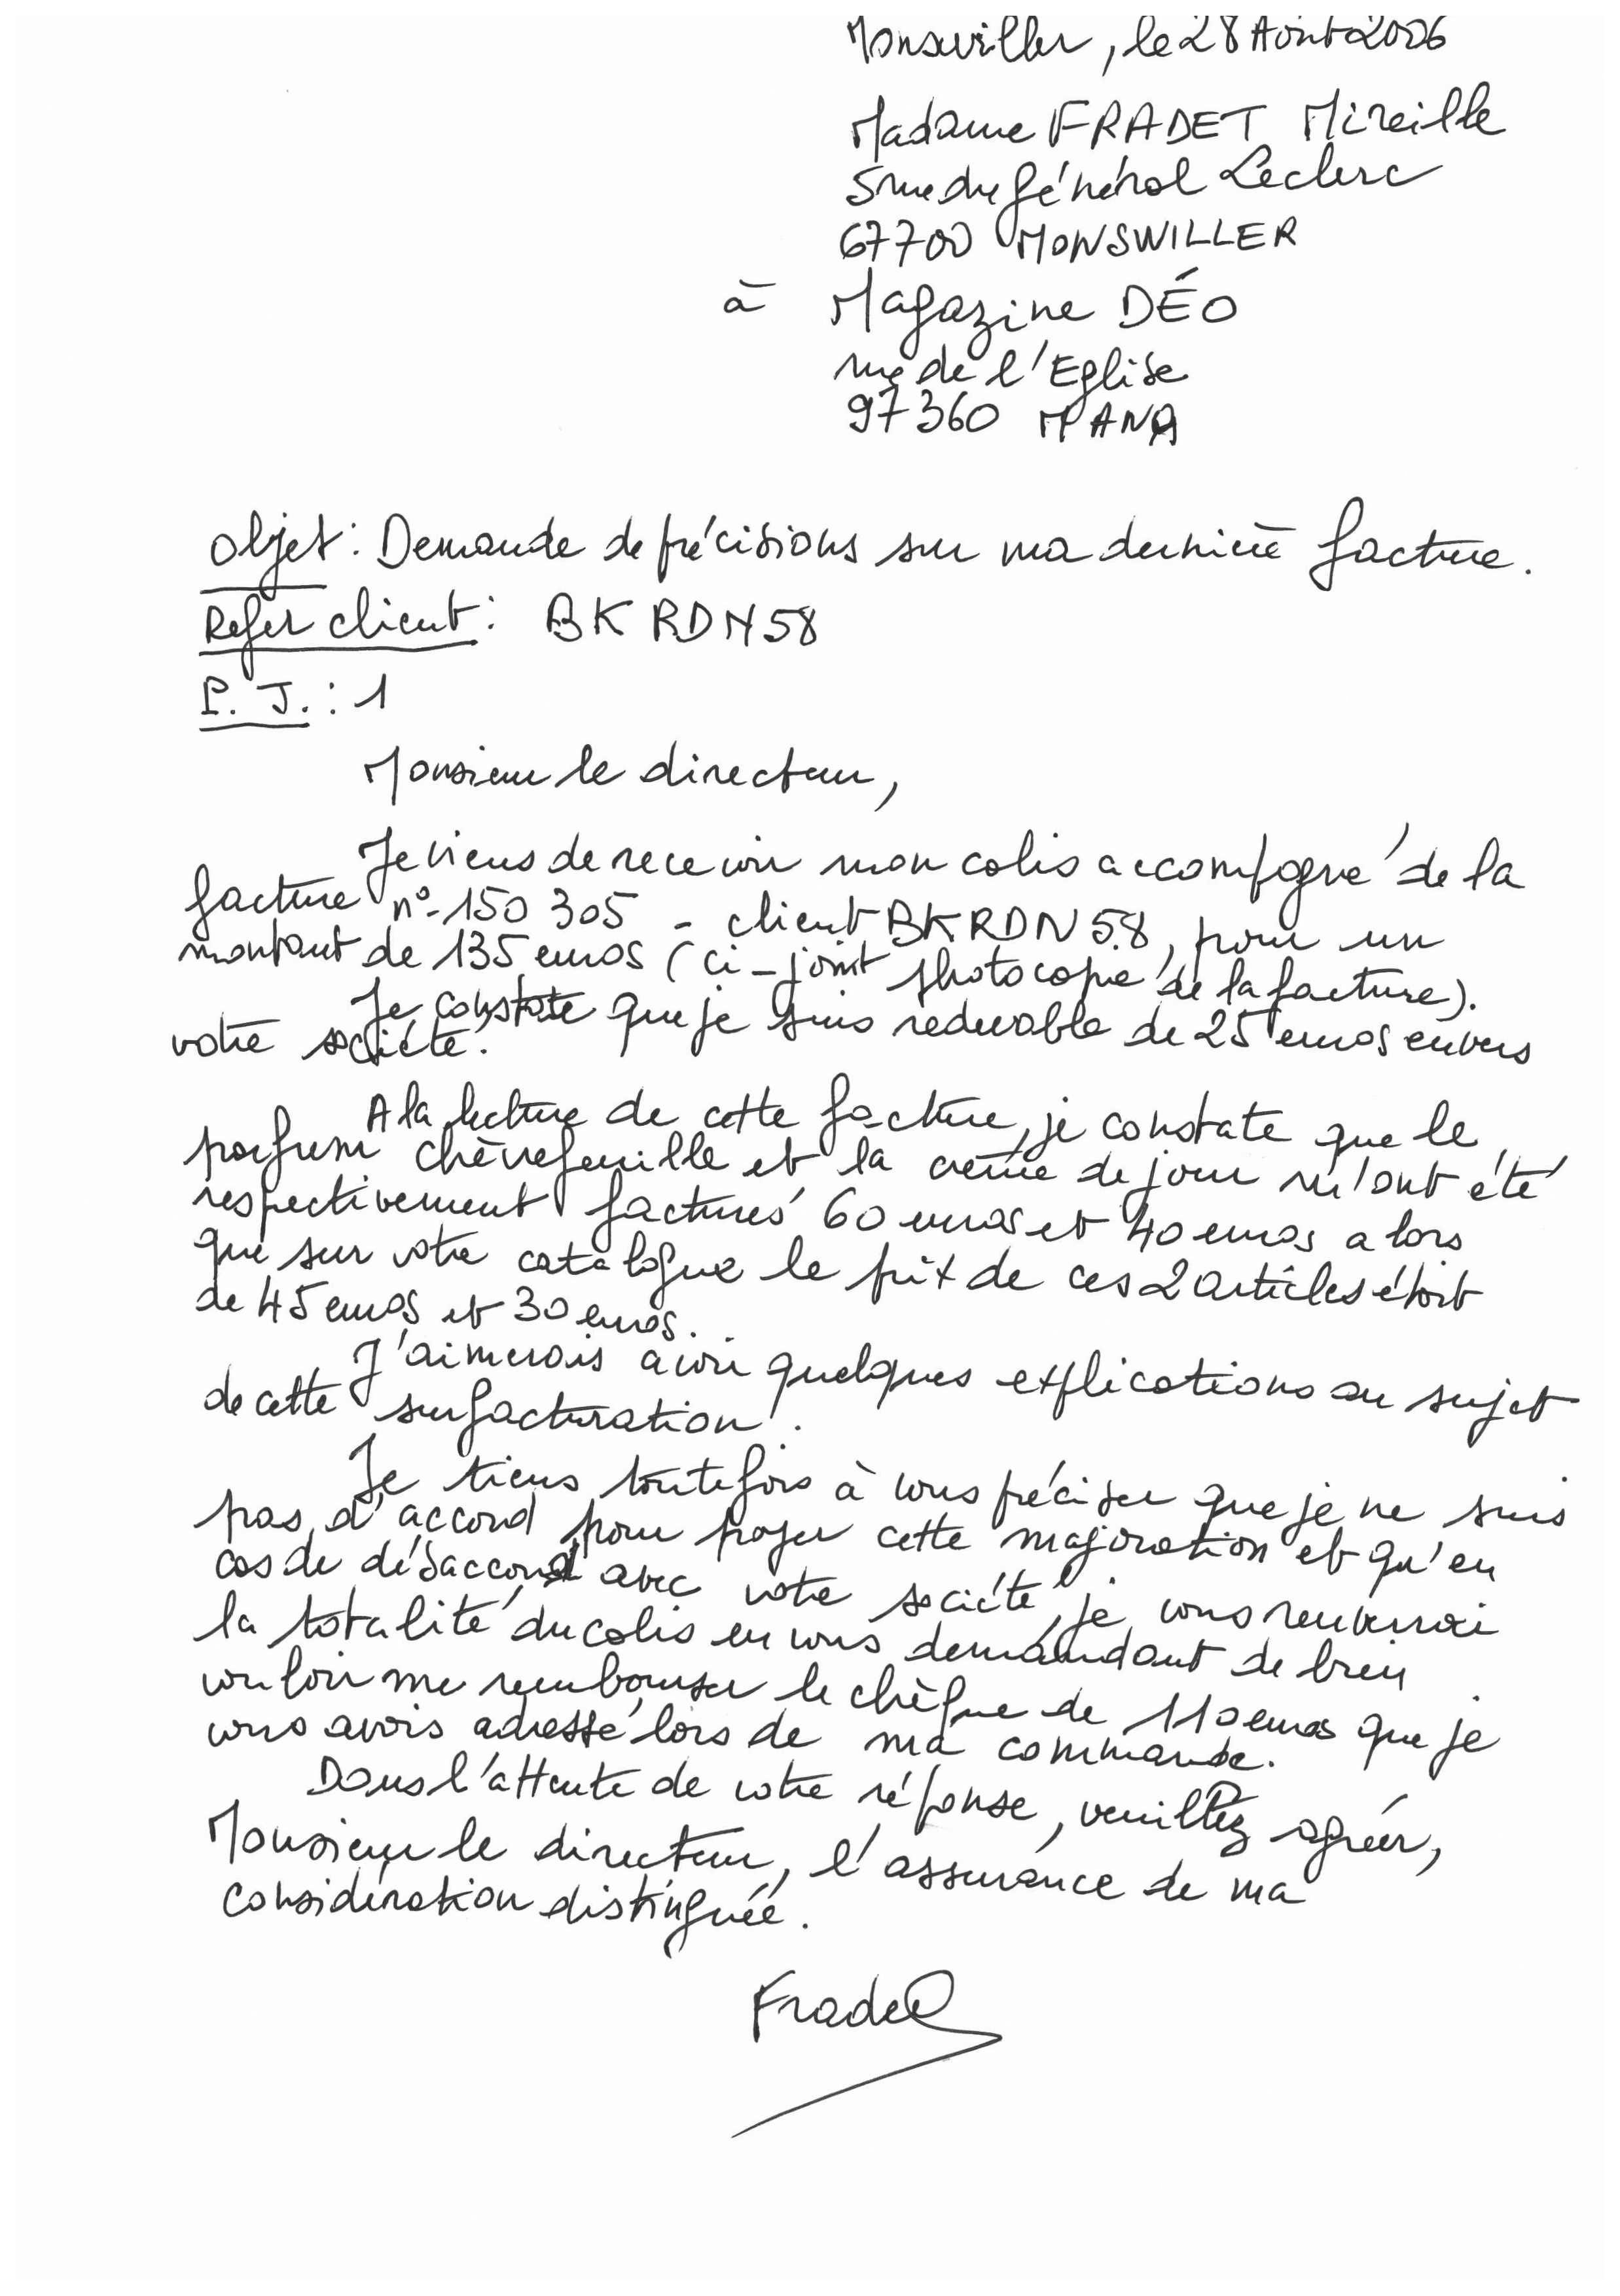 Monswiller, le 28 Août 2006
Madame FRADET Mireille
5 rue du Général Leclerc
67700 MONSWILLER
à Magazine DÉO
rue de l'Eglise
97360 MANA
Objet : Demande de précisions sur ma dernière facture.
Refer client : BKRDN58
P. J. : 1
Monsieur le directeur,
Je viens de recevoir mon colis accompagné de la
facture n° 150 305 - client BKRDN58, pour un
montant de 135 euros (ci-joint photocopie de la facture).
Je constate que je suis redevable de 25 euros envers
votre société.
A la lecture de cette facture, je constate que le
parfum chèvrefeuille et la crème de jour m'ont été
respectivement facturés 60 euros et 40 euros alors
que sur votre catalogue le prix de ces 2 articles étoit
de 45 euros et 30 euros.
J'aimerois avoir quelques explications au sujet
de cette surfacturation.
Je tiens toutefois à vous préciser que je ne suis
pas d'accord pour payer cette majoration et qu'en
cas de désaccord avec votre société, je vous renverrai
la totalité du colis en vous demandant de bien
vouloir me rembourser le chèque de 110 euros que je
vous avois adressé lors de ma commande.
Dans l'attente de votre réponse, veuillez agréer,
Monsieur le directeur, l'assurance de ma
considération distinguée.
Fradet